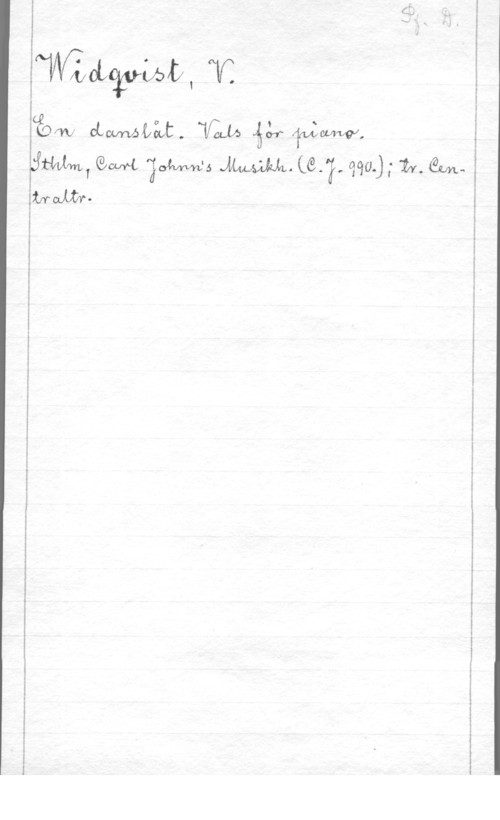 Pf. D.
Widqvist, V.
En danslåt. Vals för piano.
Sthlm, Carl Johnn's Musikh. (C. J. 990.); tr. Cen-
traltr.